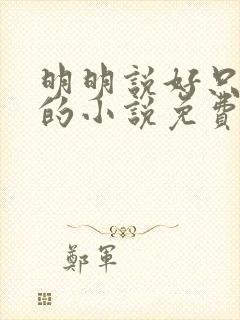 明明說好只
的小說免費
鄭軍